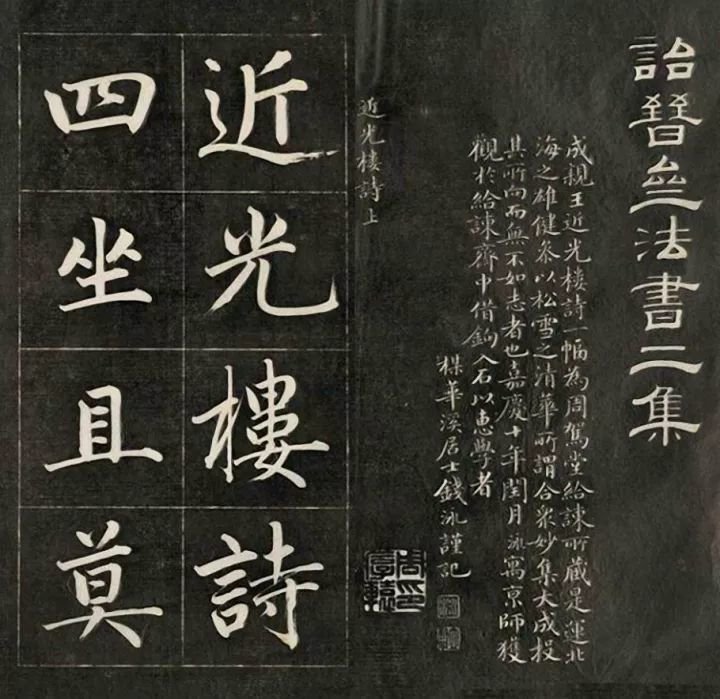 詒晉齋法書二集
成親王近光樓詩一幅為周駕堂給諫所藏是運北
海之雄健叅以松雪之清華所謂合衆妙集大成投
其所向而無不如志者也嘉慶十年閏月泳寓京師獲
觀於給諫齋中借鉤入石以惠學者
楳華溪居士錢泳謹記
近光樓詩上
近光樓詩
四坐且莫